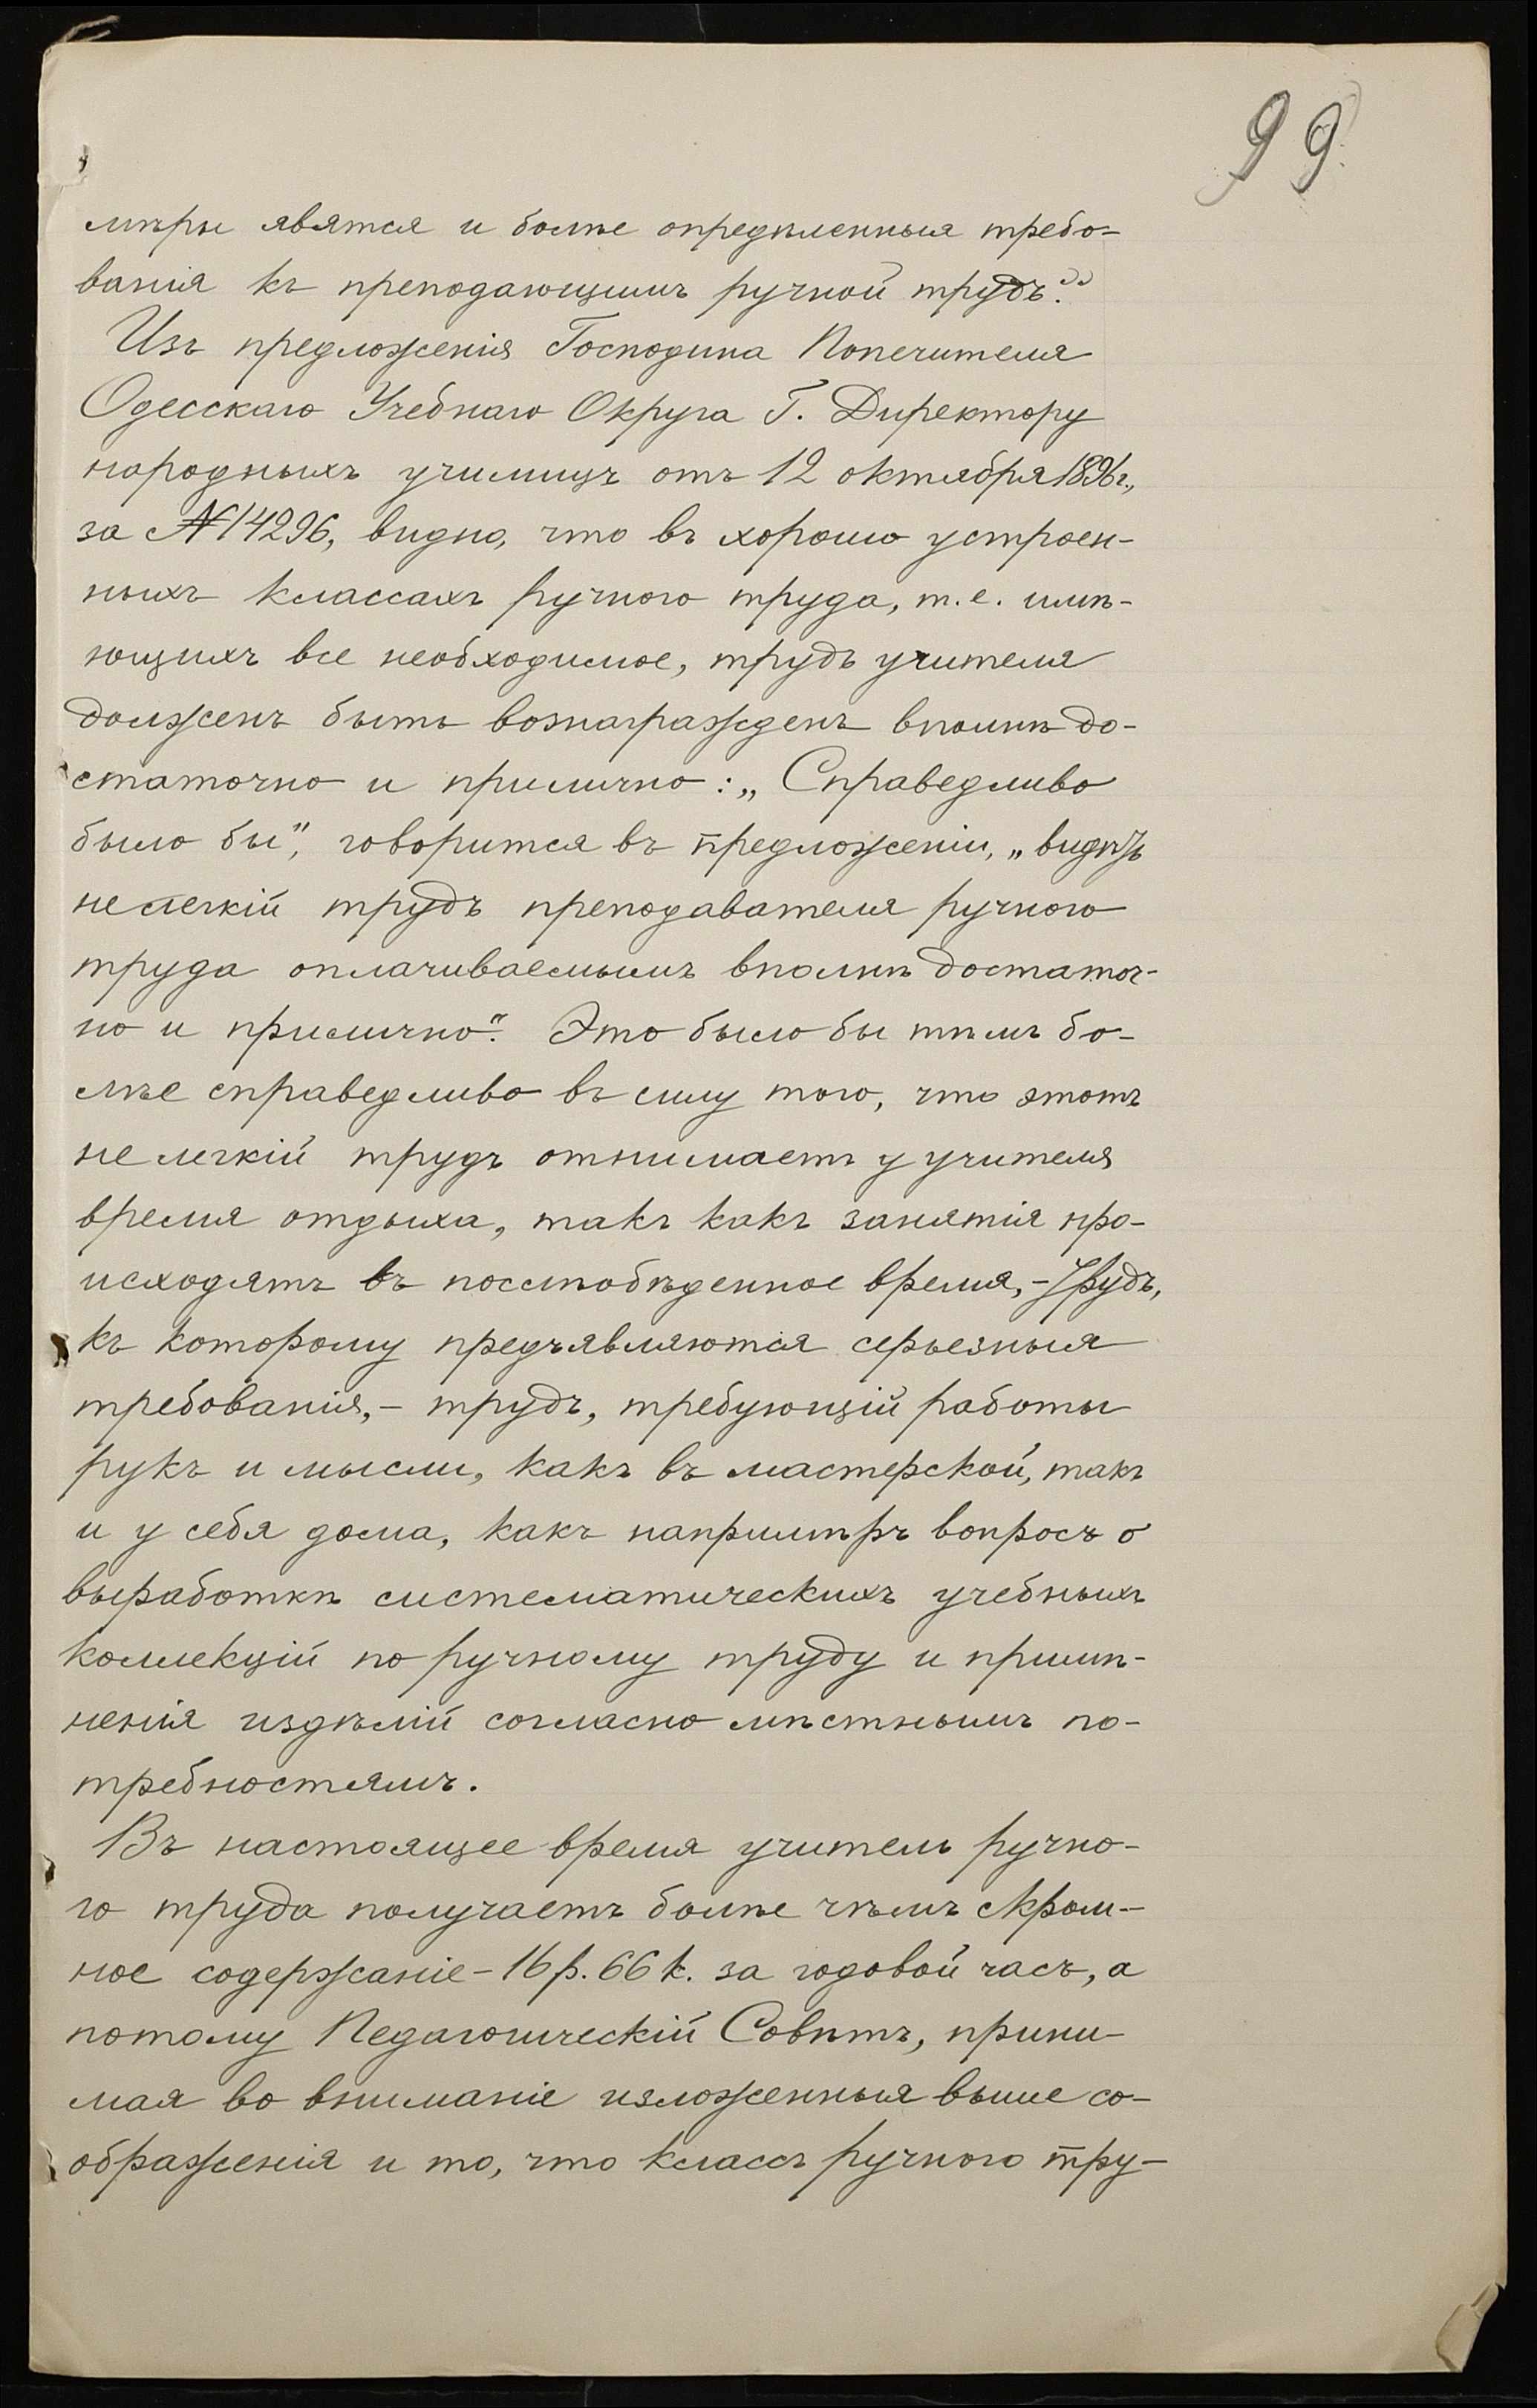 99
мѣры явятся и болѣе опредѣленныя требо-
ванія къ преподающимъ ручной трудъ."
Изъ предложенія Господина Попечителя
Одесскаго Учебнаго Округа Г. Директору
народныхъ училищъ отъ 12 октября 1896г.,
за №14296, видно, что въ хорошо устроен-
ныхъ классахъ ручного труда, т.е. имѣ-
ющихъ все необходимое, трудъ учителя
долженъ быть вознагражденъ вполнѣ до-
статочно и прилично: „Справедливо
было бы", говорится въ предложеніи, „видѣть
нелегкій трудъ преподавателя ручного
труда оплачиваемымъ вполнѣ достаточ-
но и прилично". Это было бы тѣмъ бо-
лѣе справедливо въ силу того, что этотъ
нелегкій трудъ отнимаетъ у учителя
время отдыха, такъ какъ занятія про-
исходятъ въ послѣобѣденное время,-трудъ,
къ которому предъявляются серьезныя
требованія,- трудъ, требующій работы
рукъ и мысли, какъ въ мастерской, такъ
и у себя дома, какъ напримѣръ вопросъ о
выработкѣ систематическихъ учебныхъ
коллекцій по ручному труду и примѣ-
ненія издѣлій согласно мѣстнымъ по-
требностямъ.
Въ настоящее время учитель ручно-
го труда получаетъ болѣе чѣмъ скром-
ное содержаніе-16р.66к. за годовой часъ, а
потому Педагогическій Совѣтъ, прини-
мая во вниманіе изложенныя выше со-
ображенія и то, что классъ ручного тру-